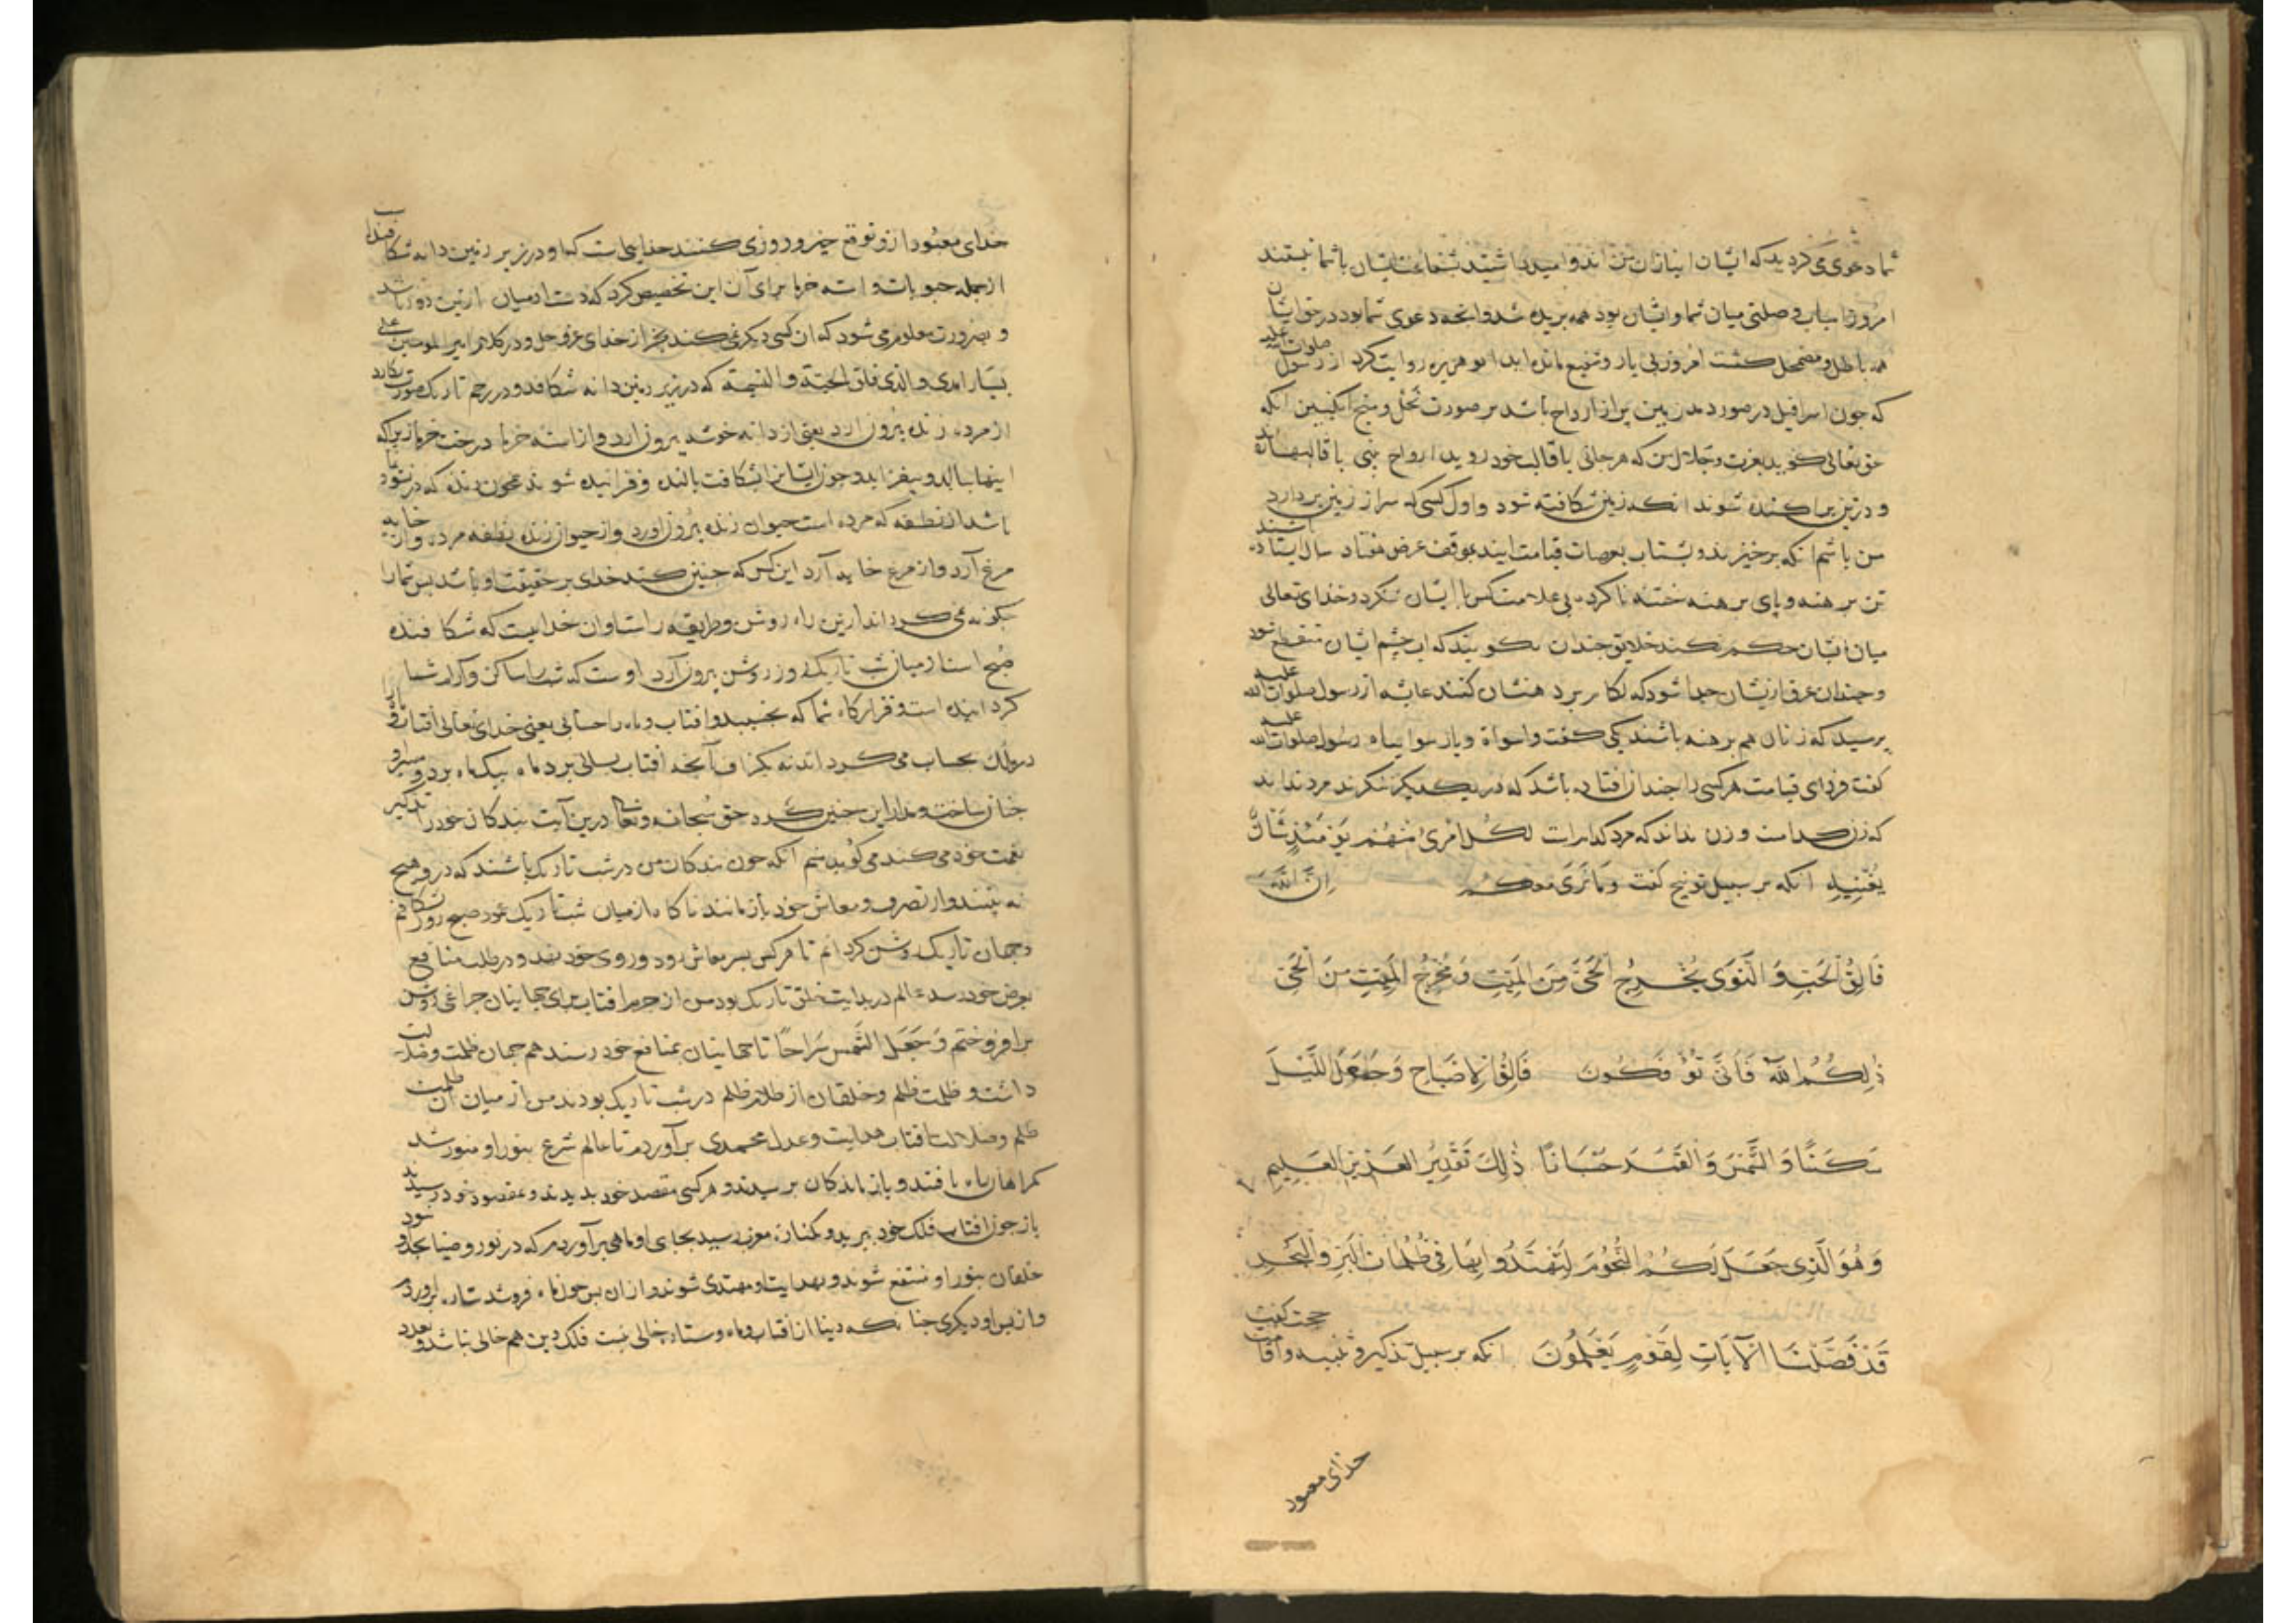 شما دعوی می کردید که ایشان انبازان من اند و امید میداشتید شفاعت ایشان با شما نیستند
امروز اسباب وصلتی میان شما و ایشان بود همه بریده شد و آنچه دعوی شما بود در حق ایشان
همه باطل و مضمحل کشت امروز بی یار و شفیع مانده اید ابو هریره روایت کرد از رسول صلوات الله علیه
که چون اسرافیل در صور دمد زمین پر از ارواح باشد بر صورت نحل و منج انکبین آنکه
حق تعالی کوید بعزت و جلال من که هر جانی با قالب خود روید ارواح با قالبها آید
و در تن پراکنده شوند آنکه زمین شکافته شود و اول کسی که سر از زمین بردارد
من باشم آنکه برخیزند و بشتاب بعرصات قیامت آیند بموقف عرض هفتاد سال ایستاده باشند
تن برهنه و پای برهنه ختنه ناکرده کس با ایشان ننکرد و خدای تعالی
میان ایشان حکم نکند خلایق چندان بکویند که آب چشم ایشان منقطع شود
و چندان عرق ازیشان جدا شود که لکام بر دهنشان کنند عایشه از رسول صلوات الله علیه
پرسید که زنان هم برهنه باشند کی کفت واسوأة رسول صلوات الله علیه
کفت فردای قیامت هر کسی را چندان افتاده باشد که در یکدیکر ننکرند مرد نداند
که زن کدامست و زن نداند که مرد کدامست لکل امرئ منهم یومئذ شأن
یغنیه آنکه بر سبیل توبیخ کفت و ما نری معکم ان الله
فَالِقُ الْحَبِّ وَ النَّوَی یُخْرِجُ الْحَیَّ مِنَ الْمَیِّتِ وَ مُخْرِجُ الْمَیِّتِ مِنَ الْحَیِّ
ذٰلِکُمُ اللهُ فَاَنّٰی تُؤْفَکُونَ فَالِقُ الْاِصْبَاحِ وَ جَعَلَ اللَّیْلَ
سَکَنًا وَ الشَّمْسَ وَ الْقَمَرَ حُسْبَانًا ذٰلِکَ تَقْدِیرُ الْعَزِیزِ الْعَلِیمِ
وَ هُوَ الَّذِی جَعَلَ لَکُمُ النُّجُومَ لِتَهْتَدُوا بِهَا فِی ظُلُمَاتِ الْبَرِّ وَ الْبَحْرِ
قَدْ فَصَّلْنَا الْآیَاتِ لِقَوْمٍ یَعْلَمُونَ آنکه بر سبیل تذکیر و تنبیه و اقامت حجت کفت
خدای معبود
خدای معبود ازو توقع خیر و روزی کنند خداییست که او در زیر زمین دانه شکافد
از جمله حبوبات و استه خرما برای آن این تخصیص کرد که دست آدمیان ازین دور باشد
و بضرورت معلوم می شود که آن کسی دیکر نمی کند بجز از خدای عز و جل و در کلام امیر المومنین علی
بسیار آمدی و الذی فلق الحبة و النسمة که در زیر زمین دانه شکافد و در رحم تاریک صورت نکارد
از مرده زنده بیرون آرد یعنی از دانه خوشه بیرون آرد و از استه خرما درخت خرما زیراکه
اینها ببالد و بیفزاید و چون ایشانرا بشکافت بالنده و فزاینده شوند همچون زنده که در نمو
باشد از نطفه که مرده است حیوان زنده بیرون آورد و از حیوان زنده نطفه مرده و از خایه
مرغ آرد و از مرغ خایه آرد این کس که چنین کند خدای بر حقیقت او باشد پس شما را
چکونه می کرداند ازین راه روشن و طریقه راست و آن خداییست که شکافنده
صبح است از میان شب تاریک روز روشن بیرون آرد اوست که شب را ساکن و آرام شما
کردانیده است و قرارکاه شما که بخسبید و آفتاب و ماه را حسابی یعنی خدای تعالی آفتاب و ماه
در فلک بحساب می کرداند نه بکزاف آنچه آفتاب بسالی برد ماه بیک ماه برد
چنان ساخت و مدار این چنین کرد حق سبحانه و تعالی درین آیت بندکان خود را تذکیر
نعمت خود می کند می کوید منم آنکه چون بندکان من در شب تاریک باشند که درو هیچ
نه بینند و از تصرف و معاش خود باز مانند ناکاه از میان شب تاریک عمود صبح روز شکافم
و جهان تاریک روشن کردانم تا هر کس بسر معاش رود و روی خود بیند و در طلب منافع
بغرض خود رسد عالم در بدایت خلق تاریک بود من از جرم آفتاب برای جهانیان چراغی روشن
برافروختم وَ جَعَلَ الشَّمْسَ سِرَاجًا تا جهانیان بمنافع خود رسند هم جهان ظلمت و ضلالت
داشت و ظلمت ظلم و خلقان از ظلام ظلم در شب تاریک بودند من از میان آن ظلمت
ظلم و ضلالت آفتاب هدایت و عدل محمدی برآوردم تا عالم شرع بنور او منور شد
کمراهان راه یافتند و باز ماندکان برسیدند و هر کسی مقصد خود بدیدند و بمقصود خود رسیدند
باز چون آفتاب فلک خود ببرید و بکناره مغرب رسید بجای او ماهی برآوردم که در نور و ضیا بجد او بود
خلقان بنور او منتفع شوند و بهدایت او مهتدی شوند و از آن پس چون ماه فروشد ستاره برآورد
و از پس او دیکری چنانکه دنیا از آفتاب و ماه و ستاره خالی نیست فلک دین هم خالی نباشد و بعدد